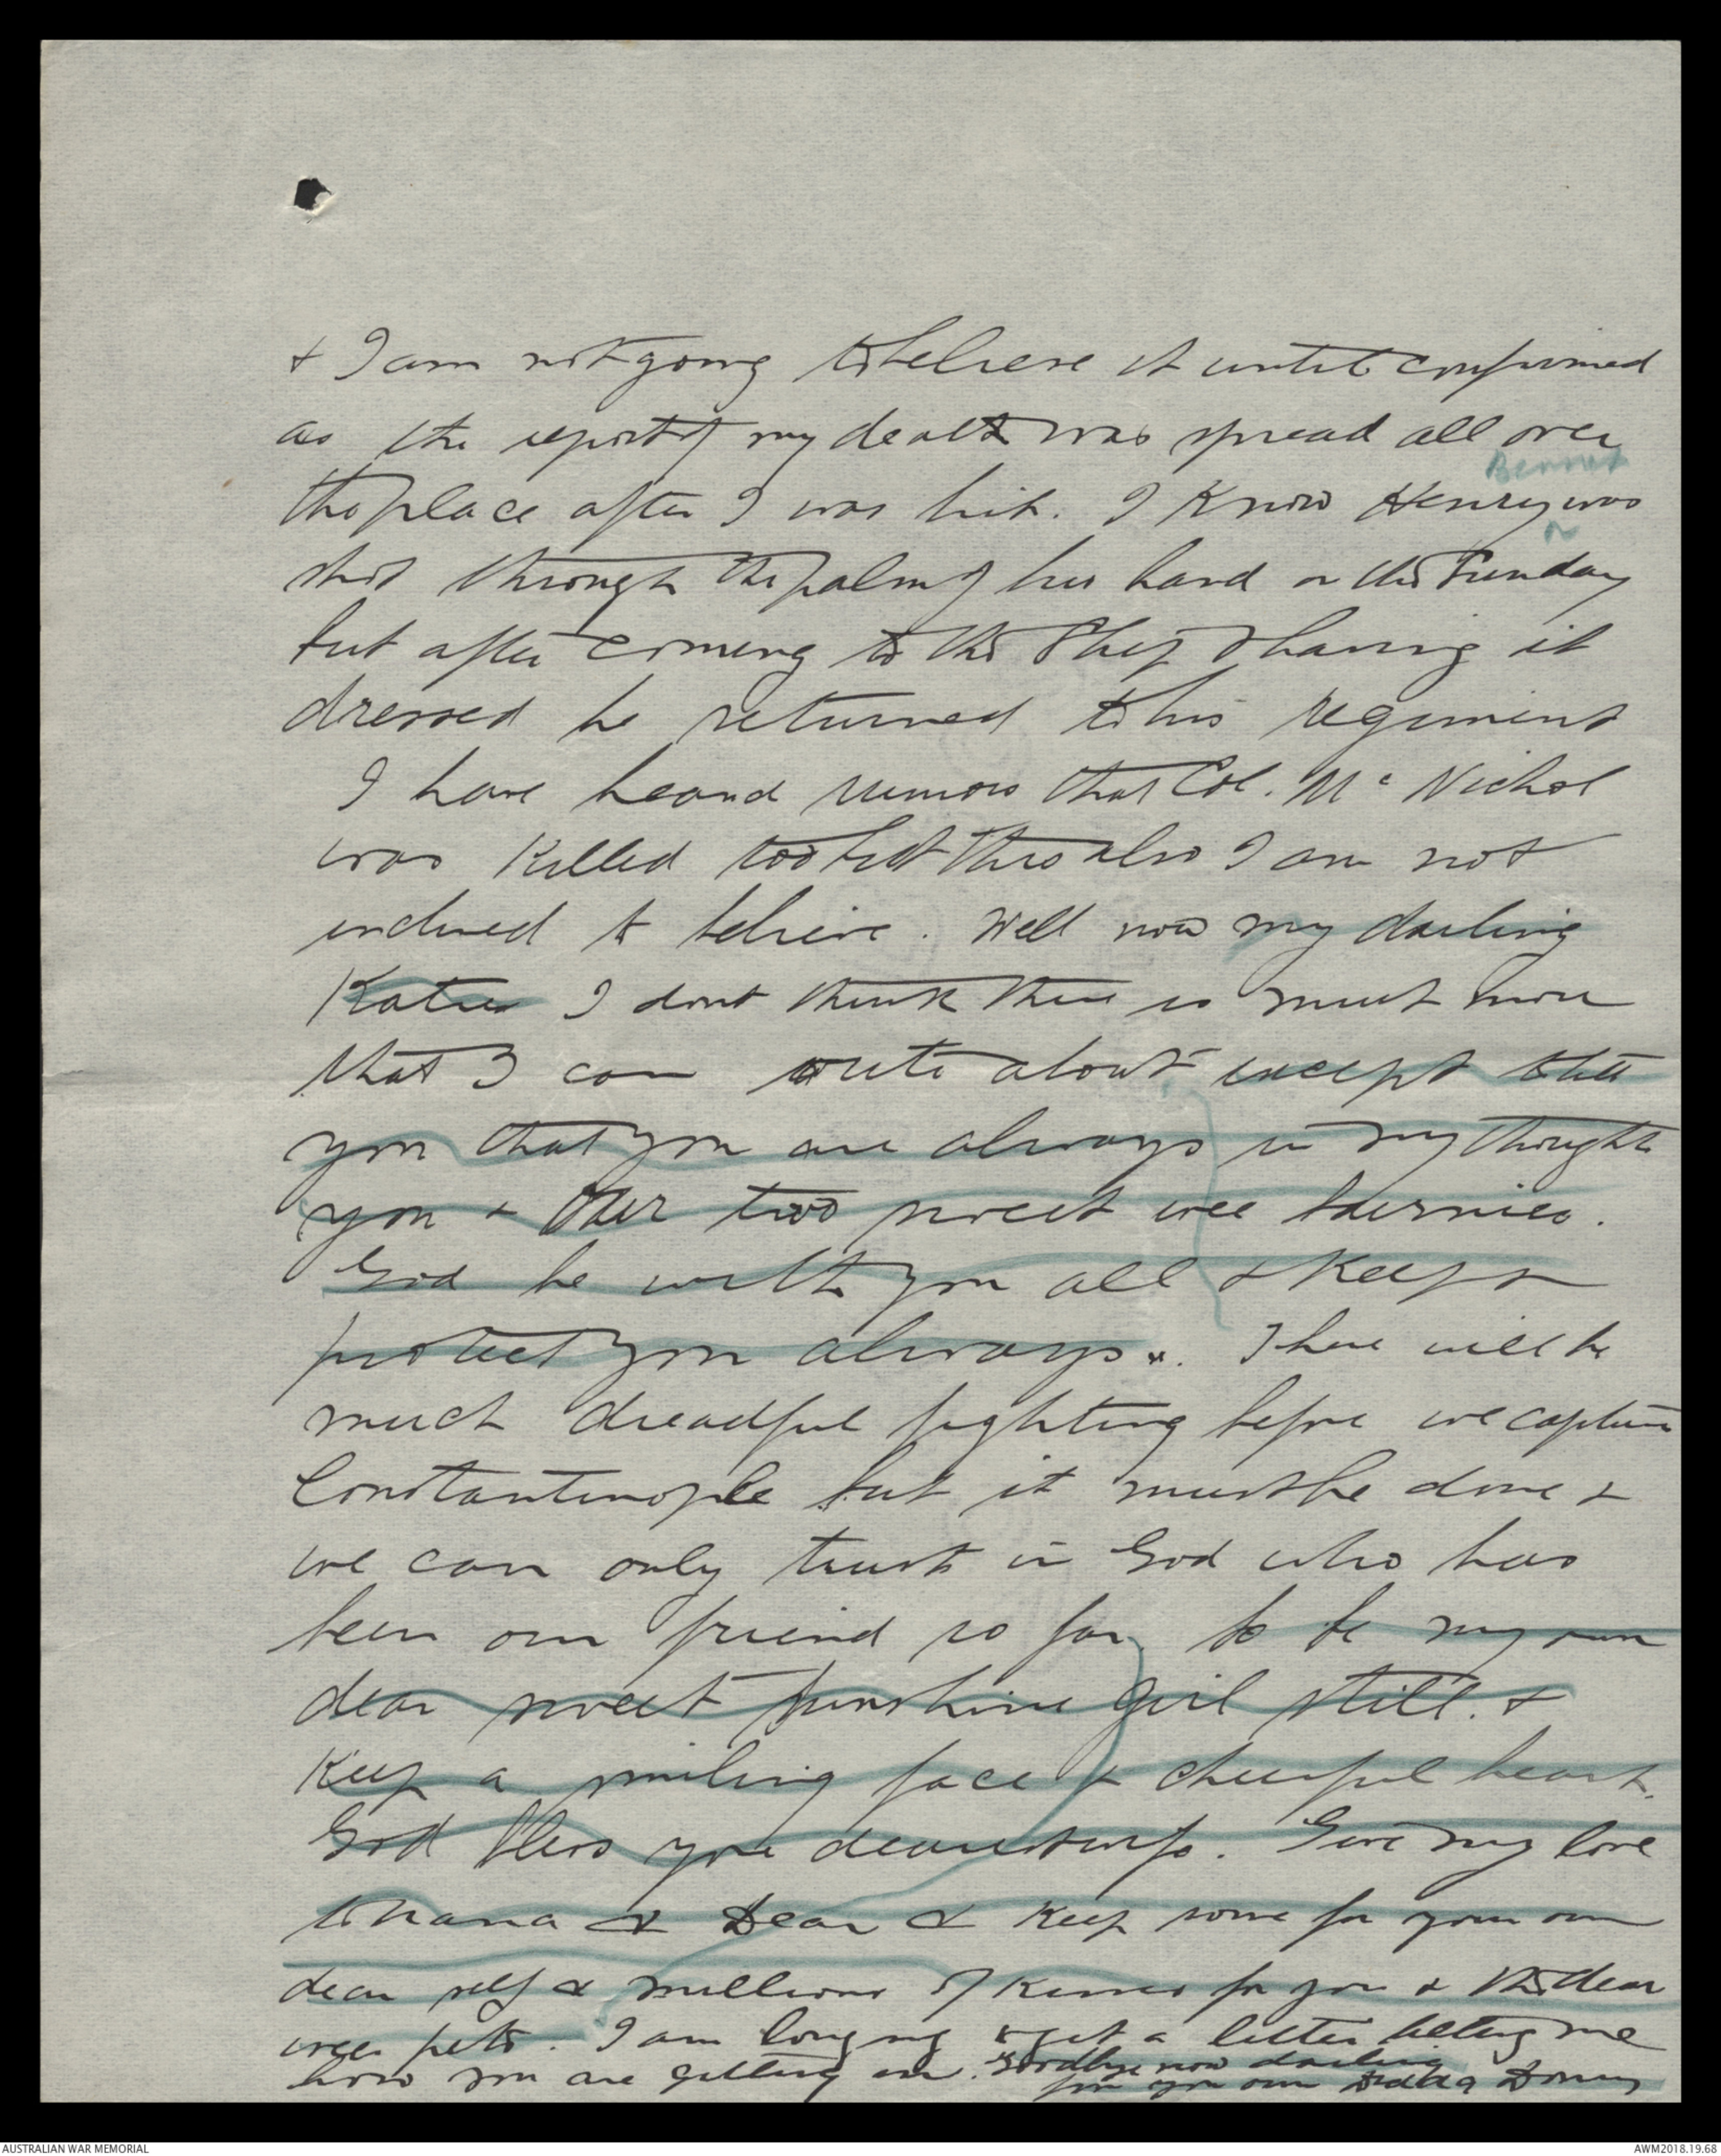 + I am not going to believe it until confirmed
as the report of my death was spread all over
Bennet
the place after I was hit. I know Henry was
shot through the palm of his hand on the Sunday
but after coming to the Ship & having it
dressed he returned to his regiment
I have heard rumors that Col. Mc Nichol
was killed too but this also I am not
inclined to believe. Well now my darling
Katie I dont think there is much more
that I can write about except to tell
you that you are always in my thoughts
you + our two sweet wee bairnies.
God be with you all & keep &
protect you always. There will be
much dreadful fighting before we capture
Constantinople but it must be done +
we can only trust in God who has
been our friend so far. So be my own
dear sweet sunshine girl still. +
Keep a smiling face & cheerful heart.
God bless you dearest wife. Give my love
to nana & Dear & keep some for your own
dear self & millions of kisses for you & the dear
wee pets. I am longing to get a letter telling me
how you are getting on. Goodbye now darling
from your own Dadda